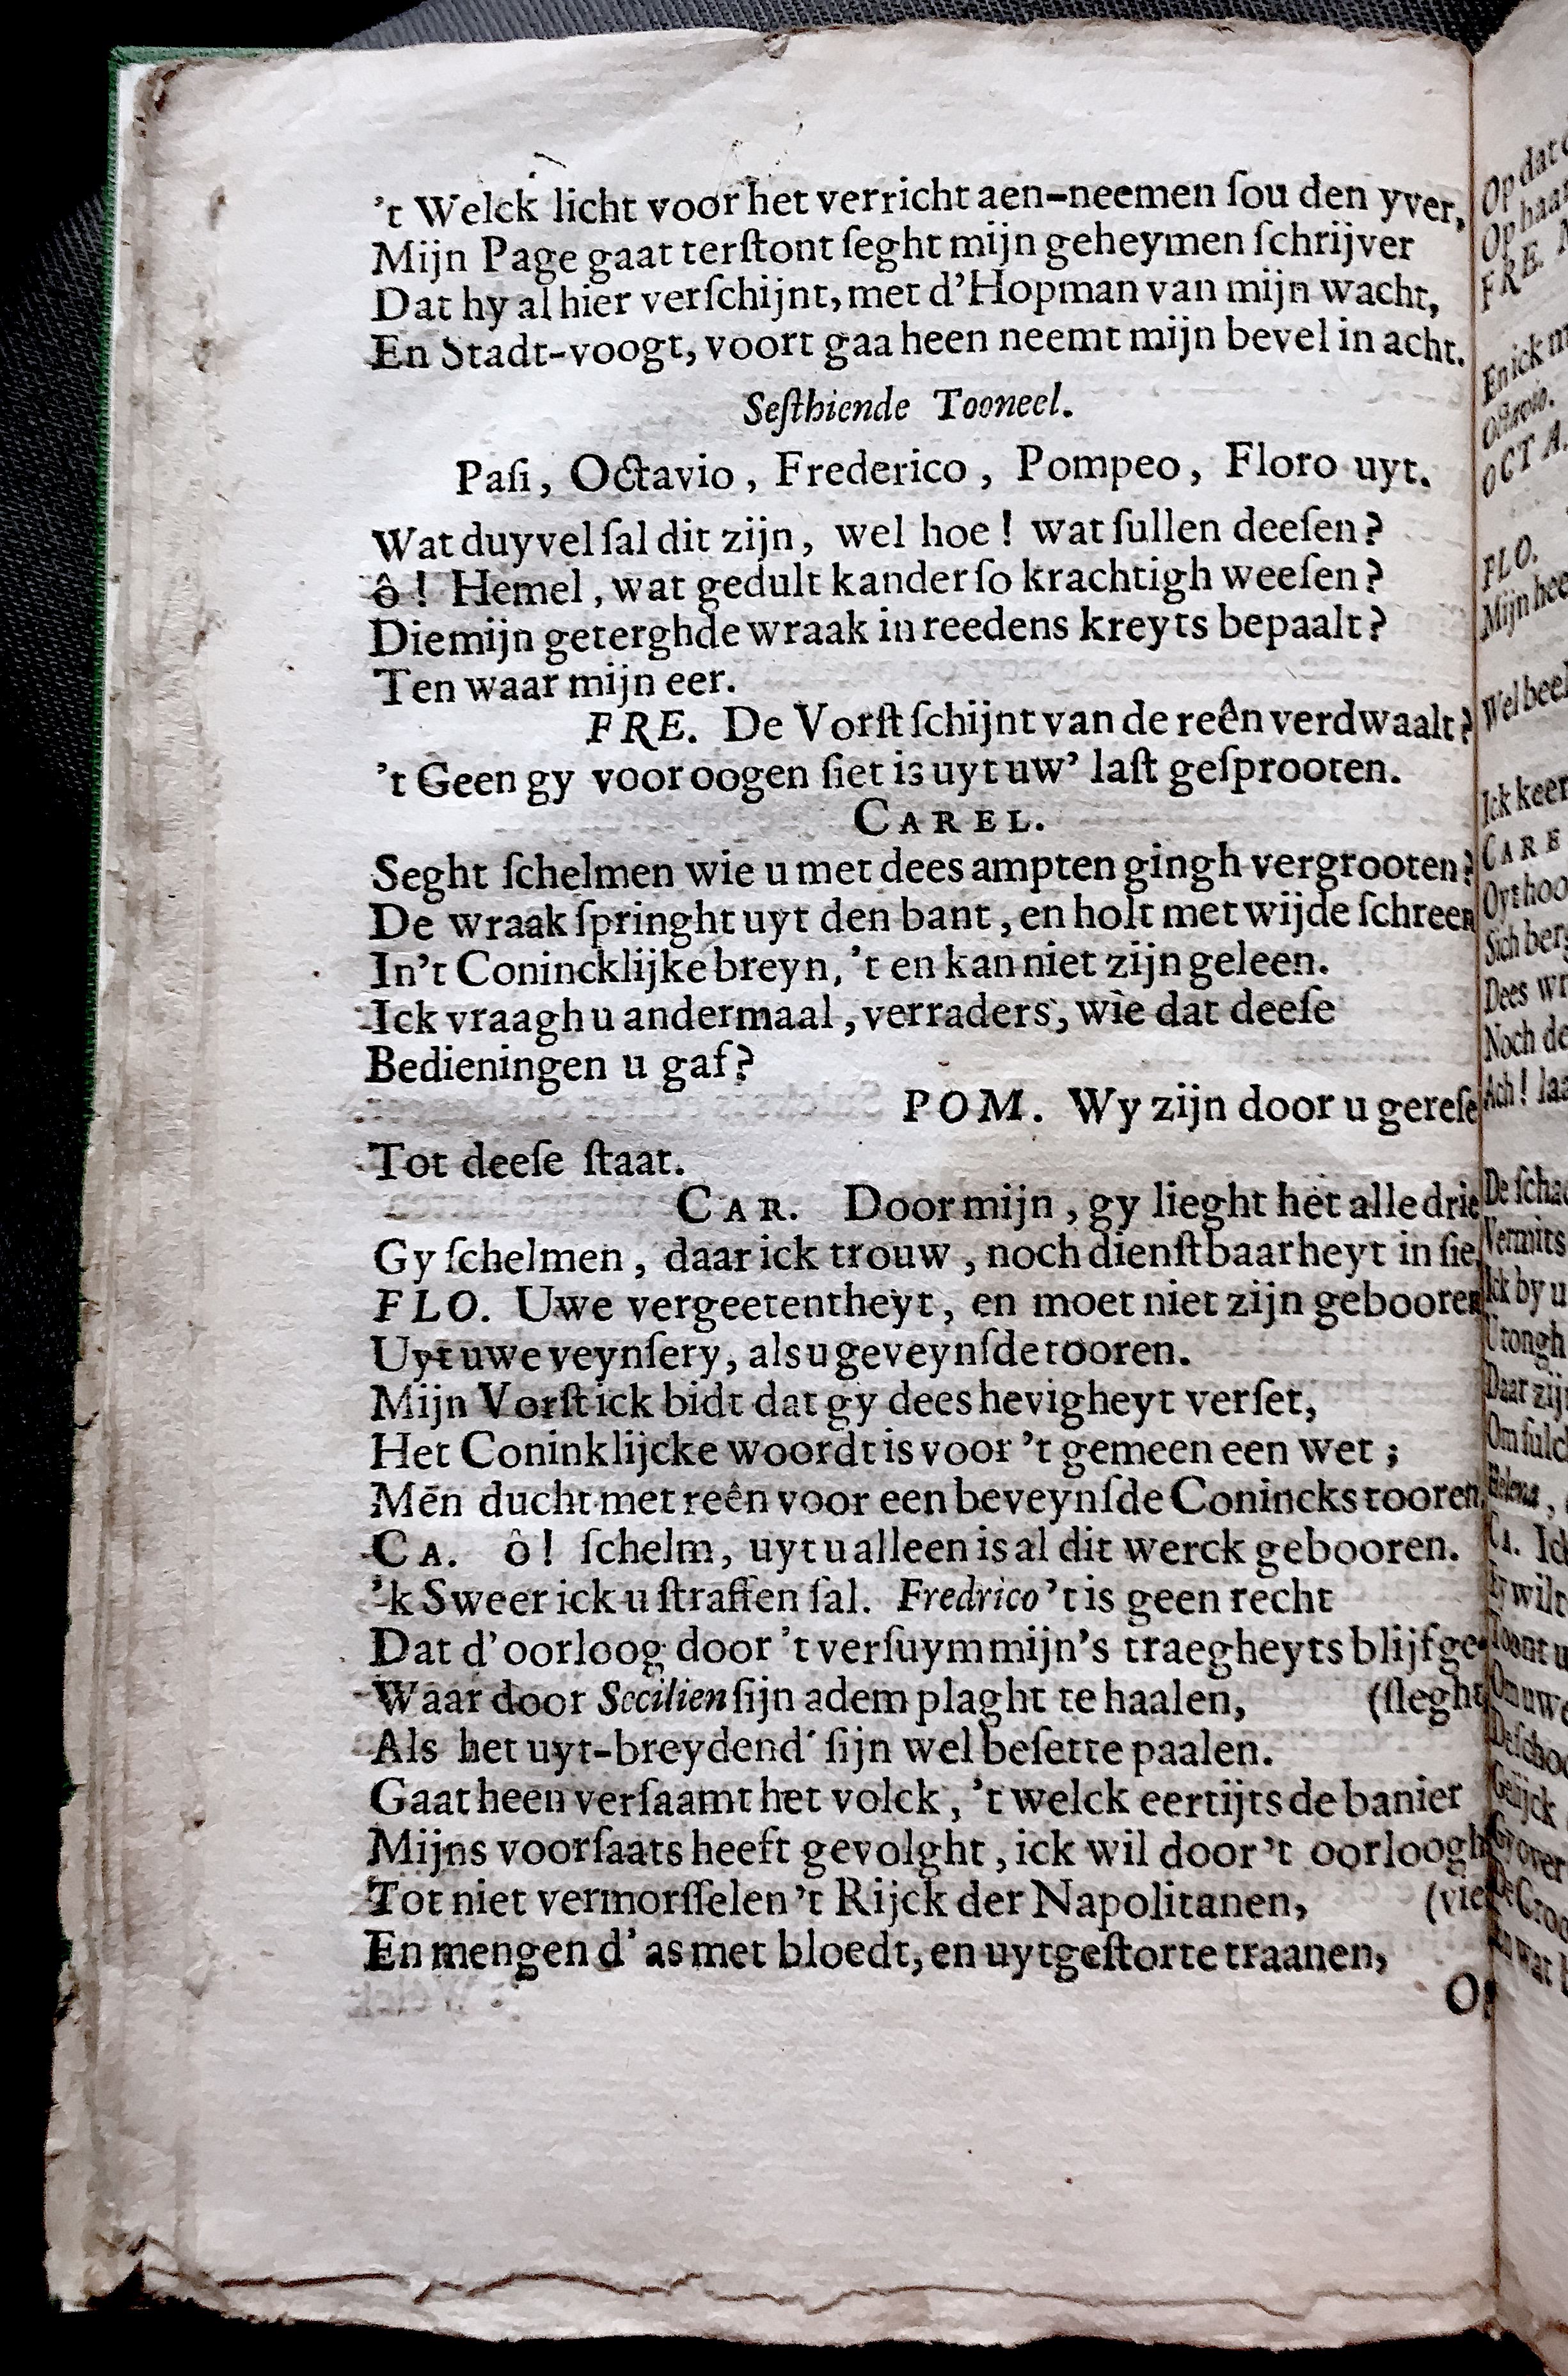 't Welck licht voor het verricht aen-neemen ſou den yver,
Mijn Page gaat terſtont ſeght mijn geheymen ſchrijver
Dat hy al hier verſchijnt, met d'Hopman van mijn wacht,
En Stadt-voogt, voort gaa heen neemt mijn bevel in acht.
Seſthiende Tooneel.
Paſi, Octavio, Frederico, Pompeo, Floro uyt.
Wat duyvel ſal dit zijn, wel hoe! wat ſullen deeſen?
ô! Hemel, wat gedult kander ſo krachtigh weeſen?
Die mijn geterghde wraak in reedens kreyts bepaalt?
Ten waar mijn eer.
FRE. De Vorſt ſchijnt van de reên verdwaalt?
't Geen gy voor oogen ſiet is uyt uw' laſt geſprooten.
CAREL.
Seght ſchelmen wie u met dees ampten gingh vergrooten?
De wraak ſpringht uyt den bant, en holt met wijde ſchreen
In't Conincklijke breyn, 't en kan niet zijn geleen.
Ick vraagh u andermaal, verraders, wie dat deeſe
Bedieningen u gaf?
POM. Wy zijn door u gereſe
Tot deeſe ſtaat.
CAR. Door mijn, gy lieght het alle drie
Gy ſchelmen, daar ick trouw, noch dienſtbaarheyt in ſie.
FLO. Uwe vergeetentheyt, en moet niet zijn gebooren
Uyt uwe veynſery, als u geveynſde tooren.
Mijn Vorſt ick bidt dat gy dees hevigheyt verſet,
Het Coninklijcke woordt is voor 't gemeen een wet;
Mēn ducht met reên voor een beveynſde Conincks tooren
CA. ô! ſchelm, uyt u alleen is al dit werck gebooren.
'k Sweer ick u ſtraffen ſal. Fredrico 't is geen recht
Dat d'oorloog door 't verſuym mijn's traegheyts blijf ge-
Waar door Secilien ſijn adem plaght te haalen, (ſleght
Als het uyt-breydend' ſijn wel beſette paalen.
Gaat heen verſaamt het volck, 't welck eertijts de banier
Mijns voorſaats heeft gevolght, ick wil door 't oorloogh
Tot niet vermorſſelen 't Rijck der Napolitanen, (vie
En mengen d'as met bloedt, en uytgeſtorte traanen,